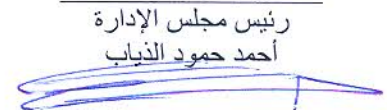 رئيس مجلس الإدارة
أحمد حمود الذياب